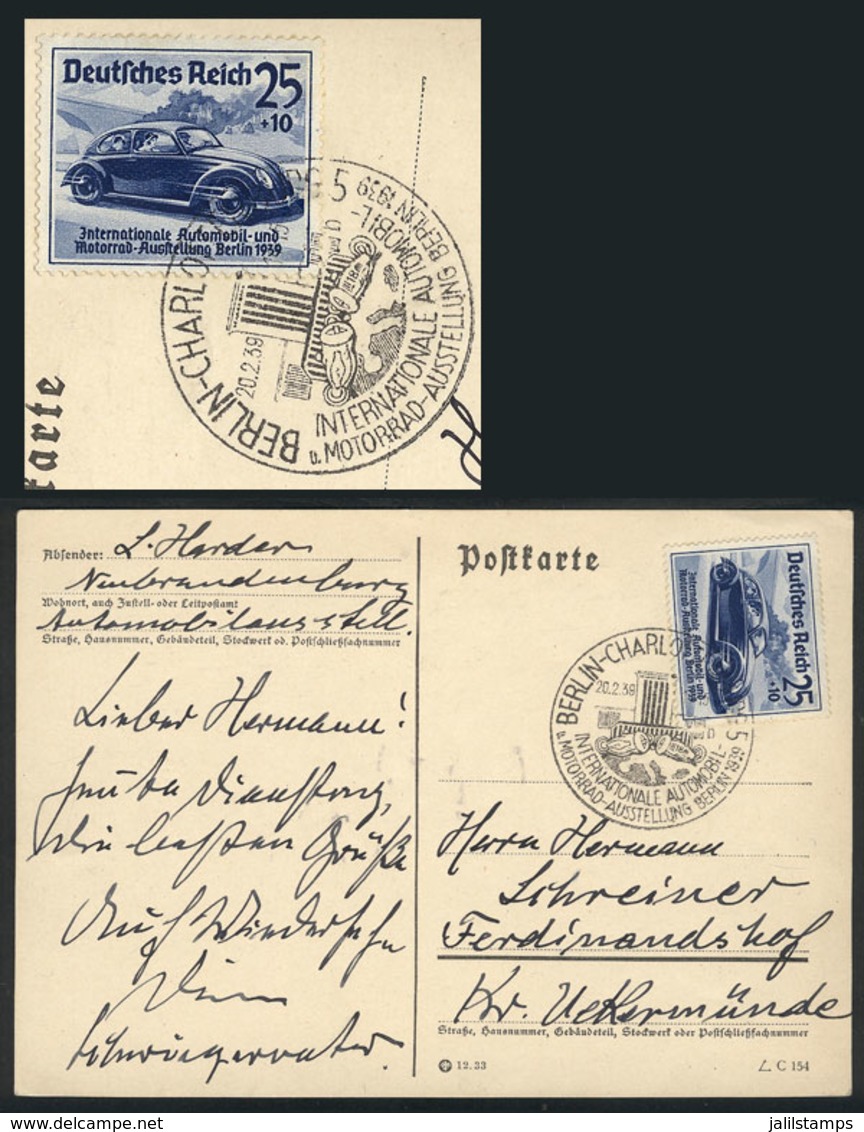 Deutsches Reich 25
+10
Internationale Automobil- und
Motorrad-Ausstellung Berlin 1939
BERLIN-CHARLO RG 5
20.2.39
INTERNATIONALE AUTOMOBIL-
u. MOTORRAD-AUSSTELLUNG BERLIN 1939
karte
Absender: L. Harder
Neubrandenburg
Wohnort, auch Zustell- oder Leitpostamt
Automobilausstell.
Straße, Hausnummer, Gebäudeteil, Stockwerk od. Postschließfachnummer
Lieber Hermann!
heute Dienstag,
die besten Grüße
Auf Wiedersehn
Dein
Schwiegervater.
Postkarte
Deutsches Reich 25
+10
Internationale Automobil- und
Motorrad-Ausstellung Berlin 1939
BERLIN-CHARLO RG 5
20.2.39
INTERNATIONALE AUTOMOBIL-
u. MOTORRAD-AUSSTELLUNG BERLIN 1939
Herrn Hermann
Schreiner
Ferdinandshof
Kr. Ueckermünde
Straße, Hausnummer, Gebäudeteil, Stockwerk oder Postschließfachnummer
12.33
C 154
www.delcampe.net
jalilstamps